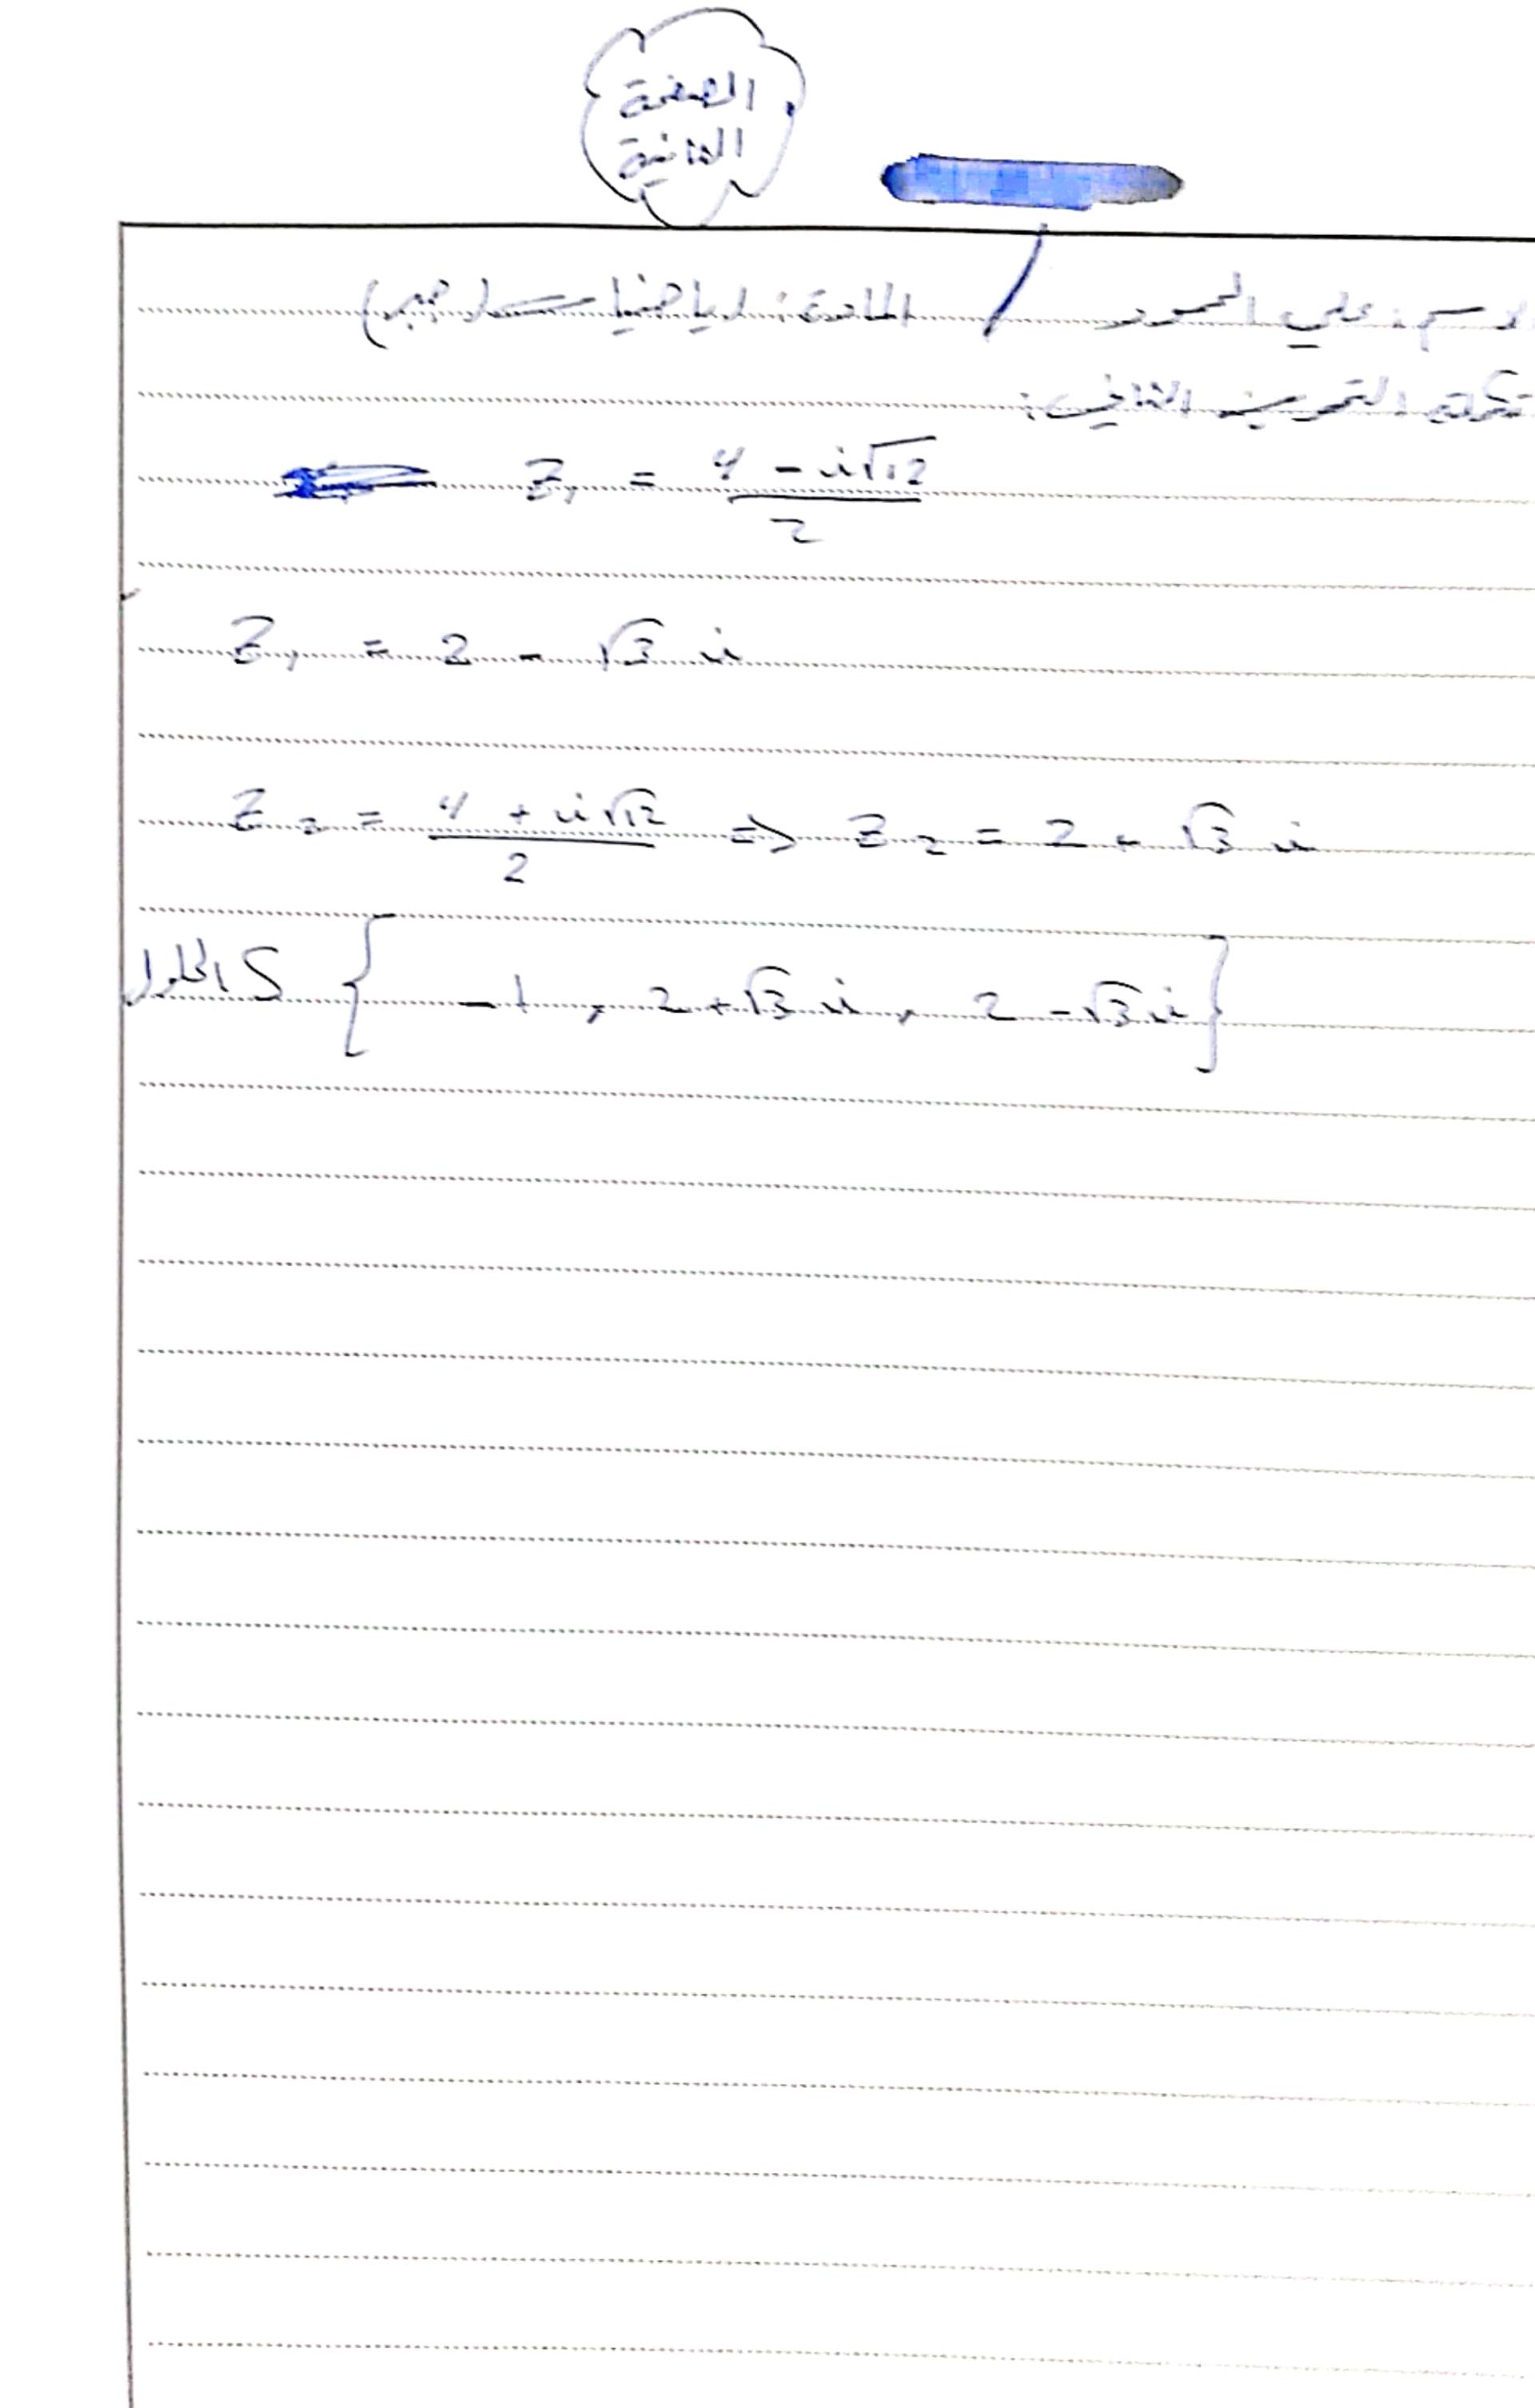 الصفحة
الثانية
الاسم: علي المحمود / المادة: رياضيات (جبر)
تكملة التمرين الثاني:
Z₁ = (4 - i√12) / 2
Z₁ = 2 - √3 i
Z₂ = (4 + i√12) / 2 ⇒ Z₂ = 2 + √3 i
الحلول S { -1, 2+√3 i, 2-√3 i }